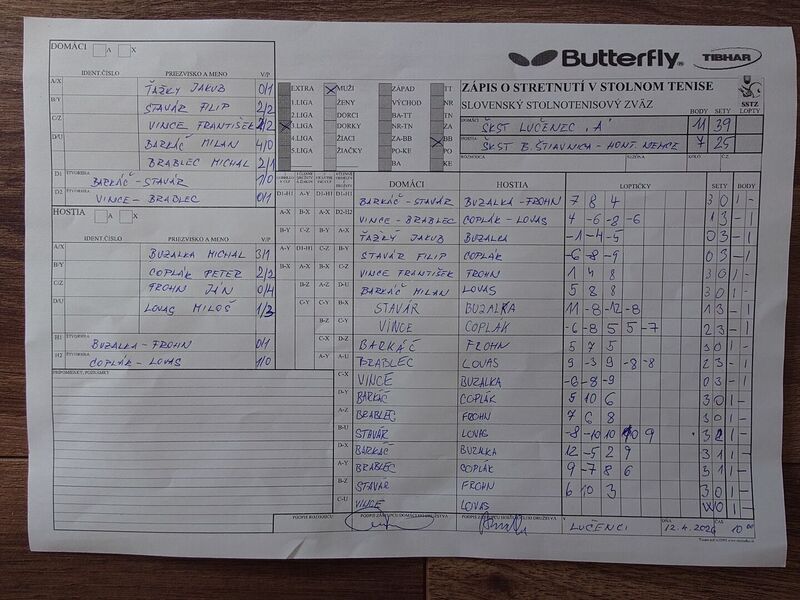 Butterfly
TIBHAR
DOMÁCI A X
IDENT.ČÍSLO PRIEZVISKO A MENO V/P
A/X ŤAŽKÝ JAKUB 0/1
B/Y STAVÁR FILIP 2/2
C/Z VINCE FRANTIŠEK 2/2
D/U BARKÁČ MILAN 4/0
BRABLEC MICHAL 2/1
D1 ŠTVORHRA BARKÁČ-STAVÁR 1/0
D2 ŠTVORHRA VINCE-BRABLEC 0/1
HOSTIA A X
IDENT.ČÍSLO PRIEZVISKO A MENO V/P
A/X BUZALKA MICHAL 3/1
B/Y COPLÁK PETER 2/2
C/Z FROHN JÁN 0/4
D/U LOVAS MILOŠ 1/3
H1 ŠTVORHRA BUZALKA-FROHN 0/1
H2 ŠTVORHRA COPLÁK-LOVAS 1/0
PRIPOMIENKY, POZNÁMKY
EXTRA MUŽI ZÁPAD TT
1.LIGA ŽENY VÝCHOD NR
2.LIGA DORCI BA-TT TN
3.LIGA DORKY NR-TN ZA
4.LIGA ŽIACI ZA-BB BB
5.LIGA ŽIAČKY PO-KE PO
BA KE
ZÁPIS O STRETNUTÍ V STOLNOM TENISE
SLOVENSKÝ STOLNOTENISOVÝ ZVÄZ
SSTZ
BODY SETY LOPTY
DOMÁCI ŠKST LUČENEC "A" 11 39
HOSTIA ŠKST B. ŠTIAVNICA - HONT. NEMCE 7 25
ROZHODCA SÚŤAŽ KOLO Č.Z.
DOMÁCI HOSTIA LOPTIČKY SETY BODY
D1-H1 A-Y D1-H1 D1-H1 BARKÁČ-STAVÁR BUZALKA-FROHN 7 8 4 3 0 1 -
A-X B-X A-X D2-H2 VINCE-BRABLEC COPLÁK-LOVAS 4 -6 -8 -6 1 3 - 1
B-Y C-Z B-Y A-X ŤAŽKÝ JAKUB BUZALKA -1 -4 -5 0 3 - 1
A-Y D1-H1 C-Z B-Y STAVÁR FILIP COPLÁK -6 -8 -9 0 3 - 1
B-X A-X B-X C-Z VINCE FRANTIŠEK FROHN 1 4 8 3 0 1 -
B-Z A-Z D-U BARKÁČ MILAN LOVAS 5 8 8 3 0 1 -
C-Y C-Y B-X STAVÁR BUZALKA 11 -8 -12 -8 1 3 - 1
B-Z C-Y VINCE COPLÁK -6 -8 5 5 -7 2 3 - 1
C-X D-Z BARKÁČ FROHN 5 7 5 3 0 1
A-Y A-U BRABLEC LOVAS 9 -3 9 -8 -8 2 3 - 1
C-X VINCE BUZALKA -6 -8 -9 0 3 - 1
D-Y BARKÁČ COPLÁK 5 10 6 3 0 1 -
A-Z BRABLEC FROHN 7 6 8 3 0 1 -
B-U STAVÁR LOVAS -8 -10 10 10 9 3 2 1 -
D-X BARKÁČ BUZALKA 12 -5 2 9 3 1 1 -
A-Y BRABLEC COPLÁK 9 -7 8 6 3 1 1 -
B-Z STAVÁR FROHN 6 10 3 3 0 1 -
C-U VINCE LOVAS WO 1 -
PODPIS ROZHODCU PODPIS ZÁPISCU DOMÁCEHO DRUŽSTVA
V LUČENCI DŇA 12.4.2026 ČAS 10 00